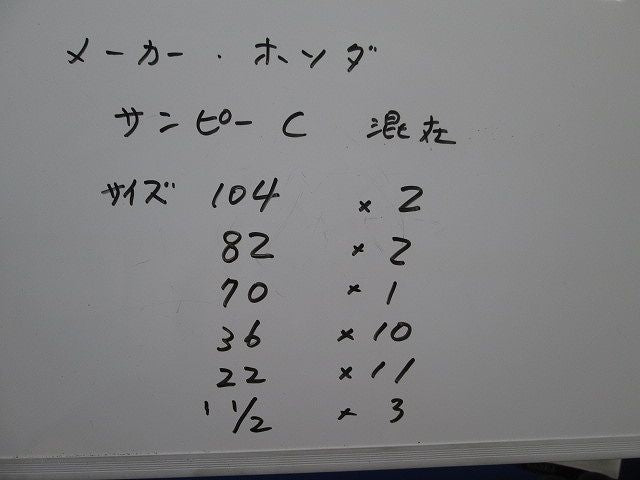 メーカー・ホンダ
サンピーC 混在
サイズ 104 × 2
82 × 2
70 × 1
36 × 10
22 × 11
1 1/2 × 3